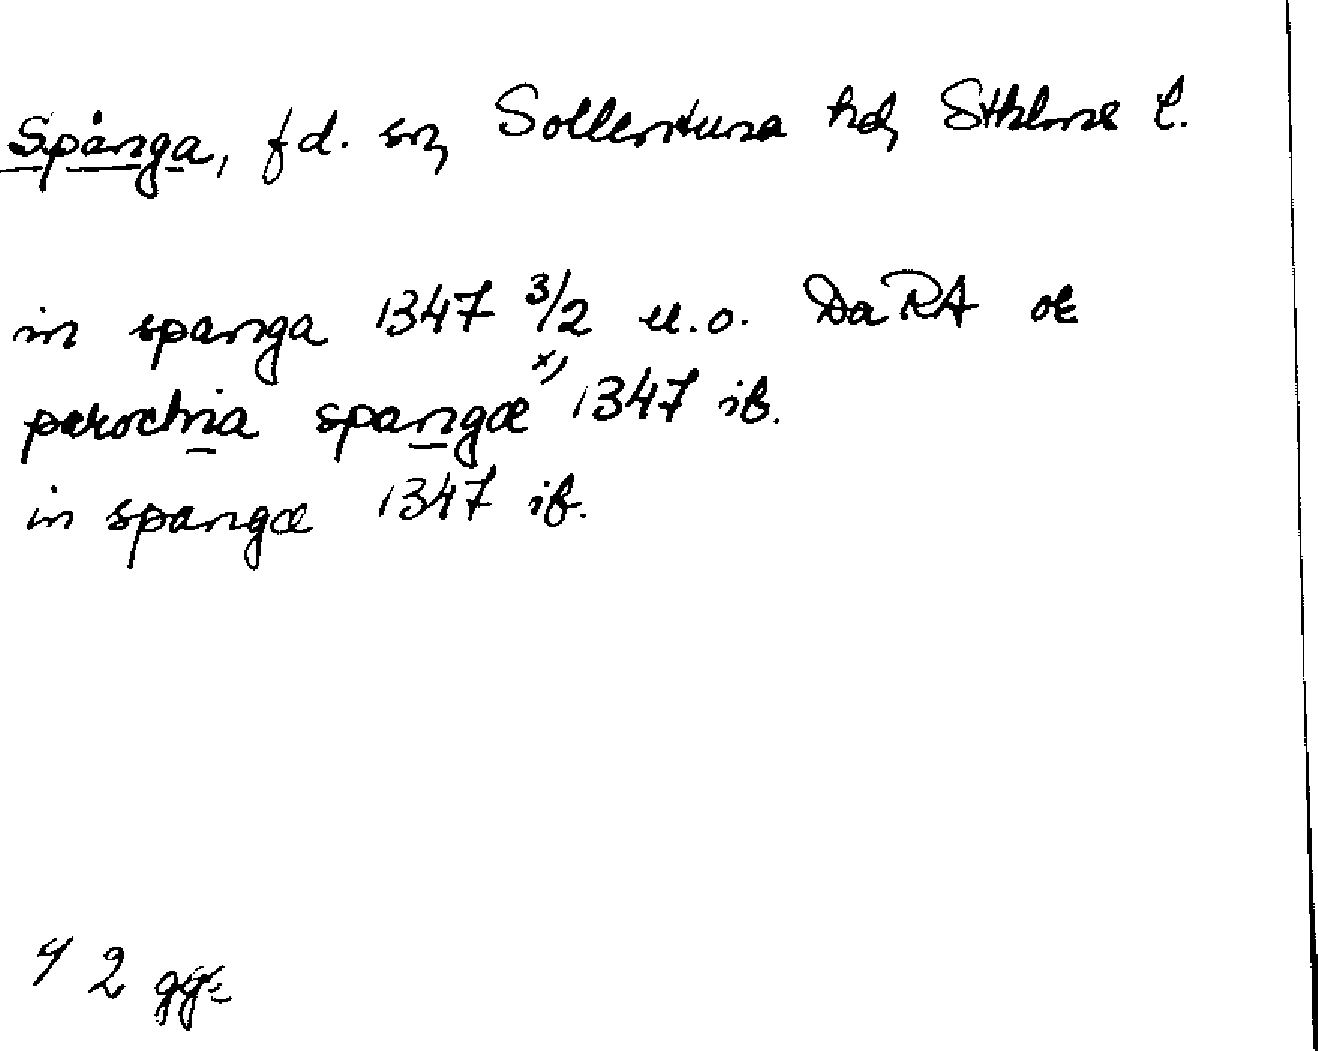 Spånga, fd. sn, Sollentuna hd, Sthlms l.
in spanga 1347 3/2 u.o. DaRA or
parochia spangæ x) 1347 ib.
in spangæ 1347 ib.
x) 2 ggr